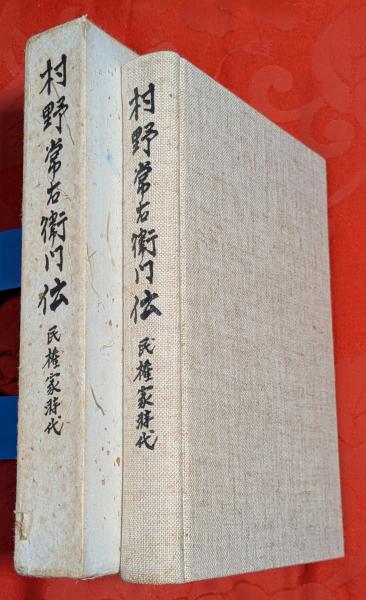 村野常右衛门伝
民権家時代
村野常右衛门伝
民権家時代